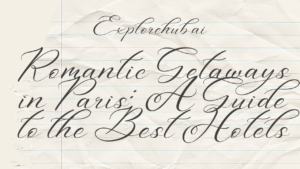 Explorehub.ai
Romantic Getaways
in Paris: A Guide
to the Best Hotels